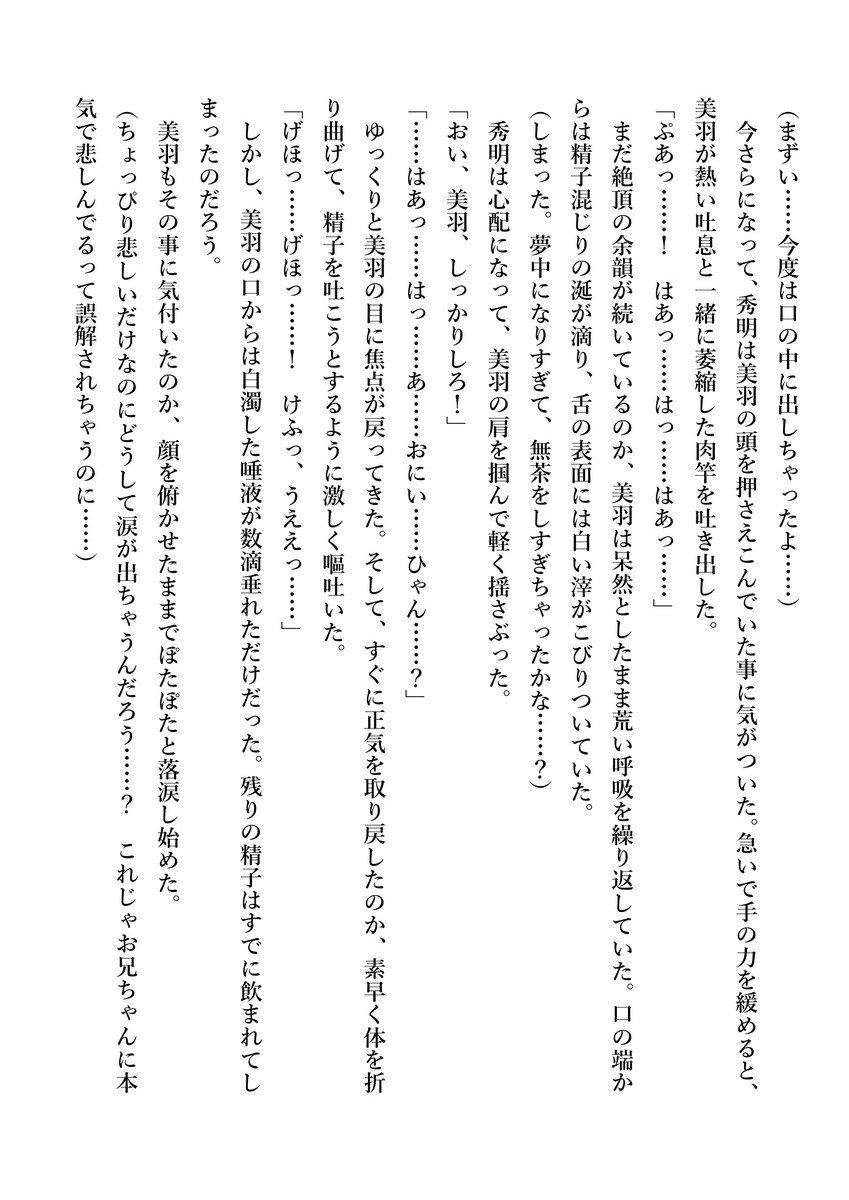 (まずい……今度は口の中に出しちゃったよ……)
今さらになって、秀明は美羽の頭を押さえこんでいた事に気がついた。急いで手の力を緩めると、
美羽が熱い吐息と一緒に萎縮した肉竿を吐き出した。
「ぷあっ……！　はあっ……はっ……はあっ……」
まだ絶頂の余韻が続いているのか、美羽は呆然としたまま荒い呼吸を繰り返していた。口の端か
らは精子混じりの涎が滴り、舌の表面には白い滓がこびりついていた。
(しまった。夢中になりすぎて、無茶をしすぎちゃったかな……？)
秀明は心配になって、美羽の肩を掴んで軽く揺さぶった。
「おい、美羽、しっかりしろ！」
「……はあっ……はっ……あ……おにい……ひゃん……？」
ゆっくりと美羽の目に焦点が戻ってきた。そして、すぐに正気を取り戻したのか、素早く体を折
り曲げて、精子を吐こうとするように激しく嘔吐いた。
「げほっ……げほっ……！　けふっ、うええっ……」
しかし、美羽の口からは白濁した唾液が数滴垂れただけだった。残りの精子はすでに飲まれてし
まったのだろう。
美羽もその事に気付いたのか、顔を俯かせたままでぽたぽたと落涙し始めた。
(ちょっぴり悲しいだけなのにどうして涙が出ちゃうんだろう……？　これじゃお兄ちゃんに本
気で悲しんでるって誤解されちゃうのに……)